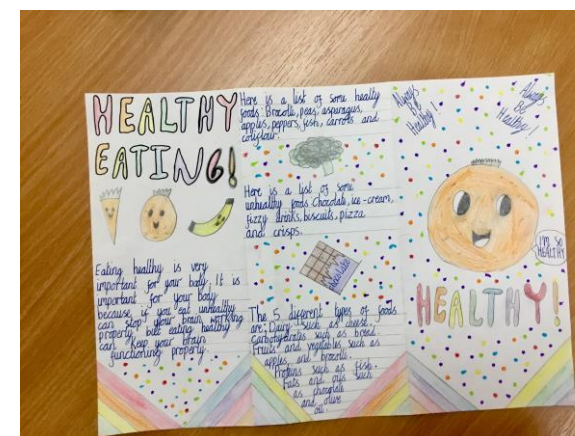 HEALTHY
EATING!
Eating healthy is very
important for your body. It is
important for your body
because if you eat unhealthy
can stop your brain working
properly but eating healthy
can keep your brain
functioning properly.
Here is a list of some healthy
foods. Brocolli, peas, asparagus,
apples, peppers, fish, carrots and
Here is a list of some
unhealthy foods Chocolate, ice-cream,
fizzy drinks, biscuits, pizza
and crisps.
chocolate
The 5 different types of foods
are: Dairy such as cheese,
Carbohydrates such as bread.
Fruits and vegetables, such as
apples, and brocolli.
Proteins such as fish.
Fats and oils such
as chocolate
and olive
oil.
Always
Be
Healthy!
Always
Be
Healthy!
I'M SO
HEALTHY
HEALTHY!